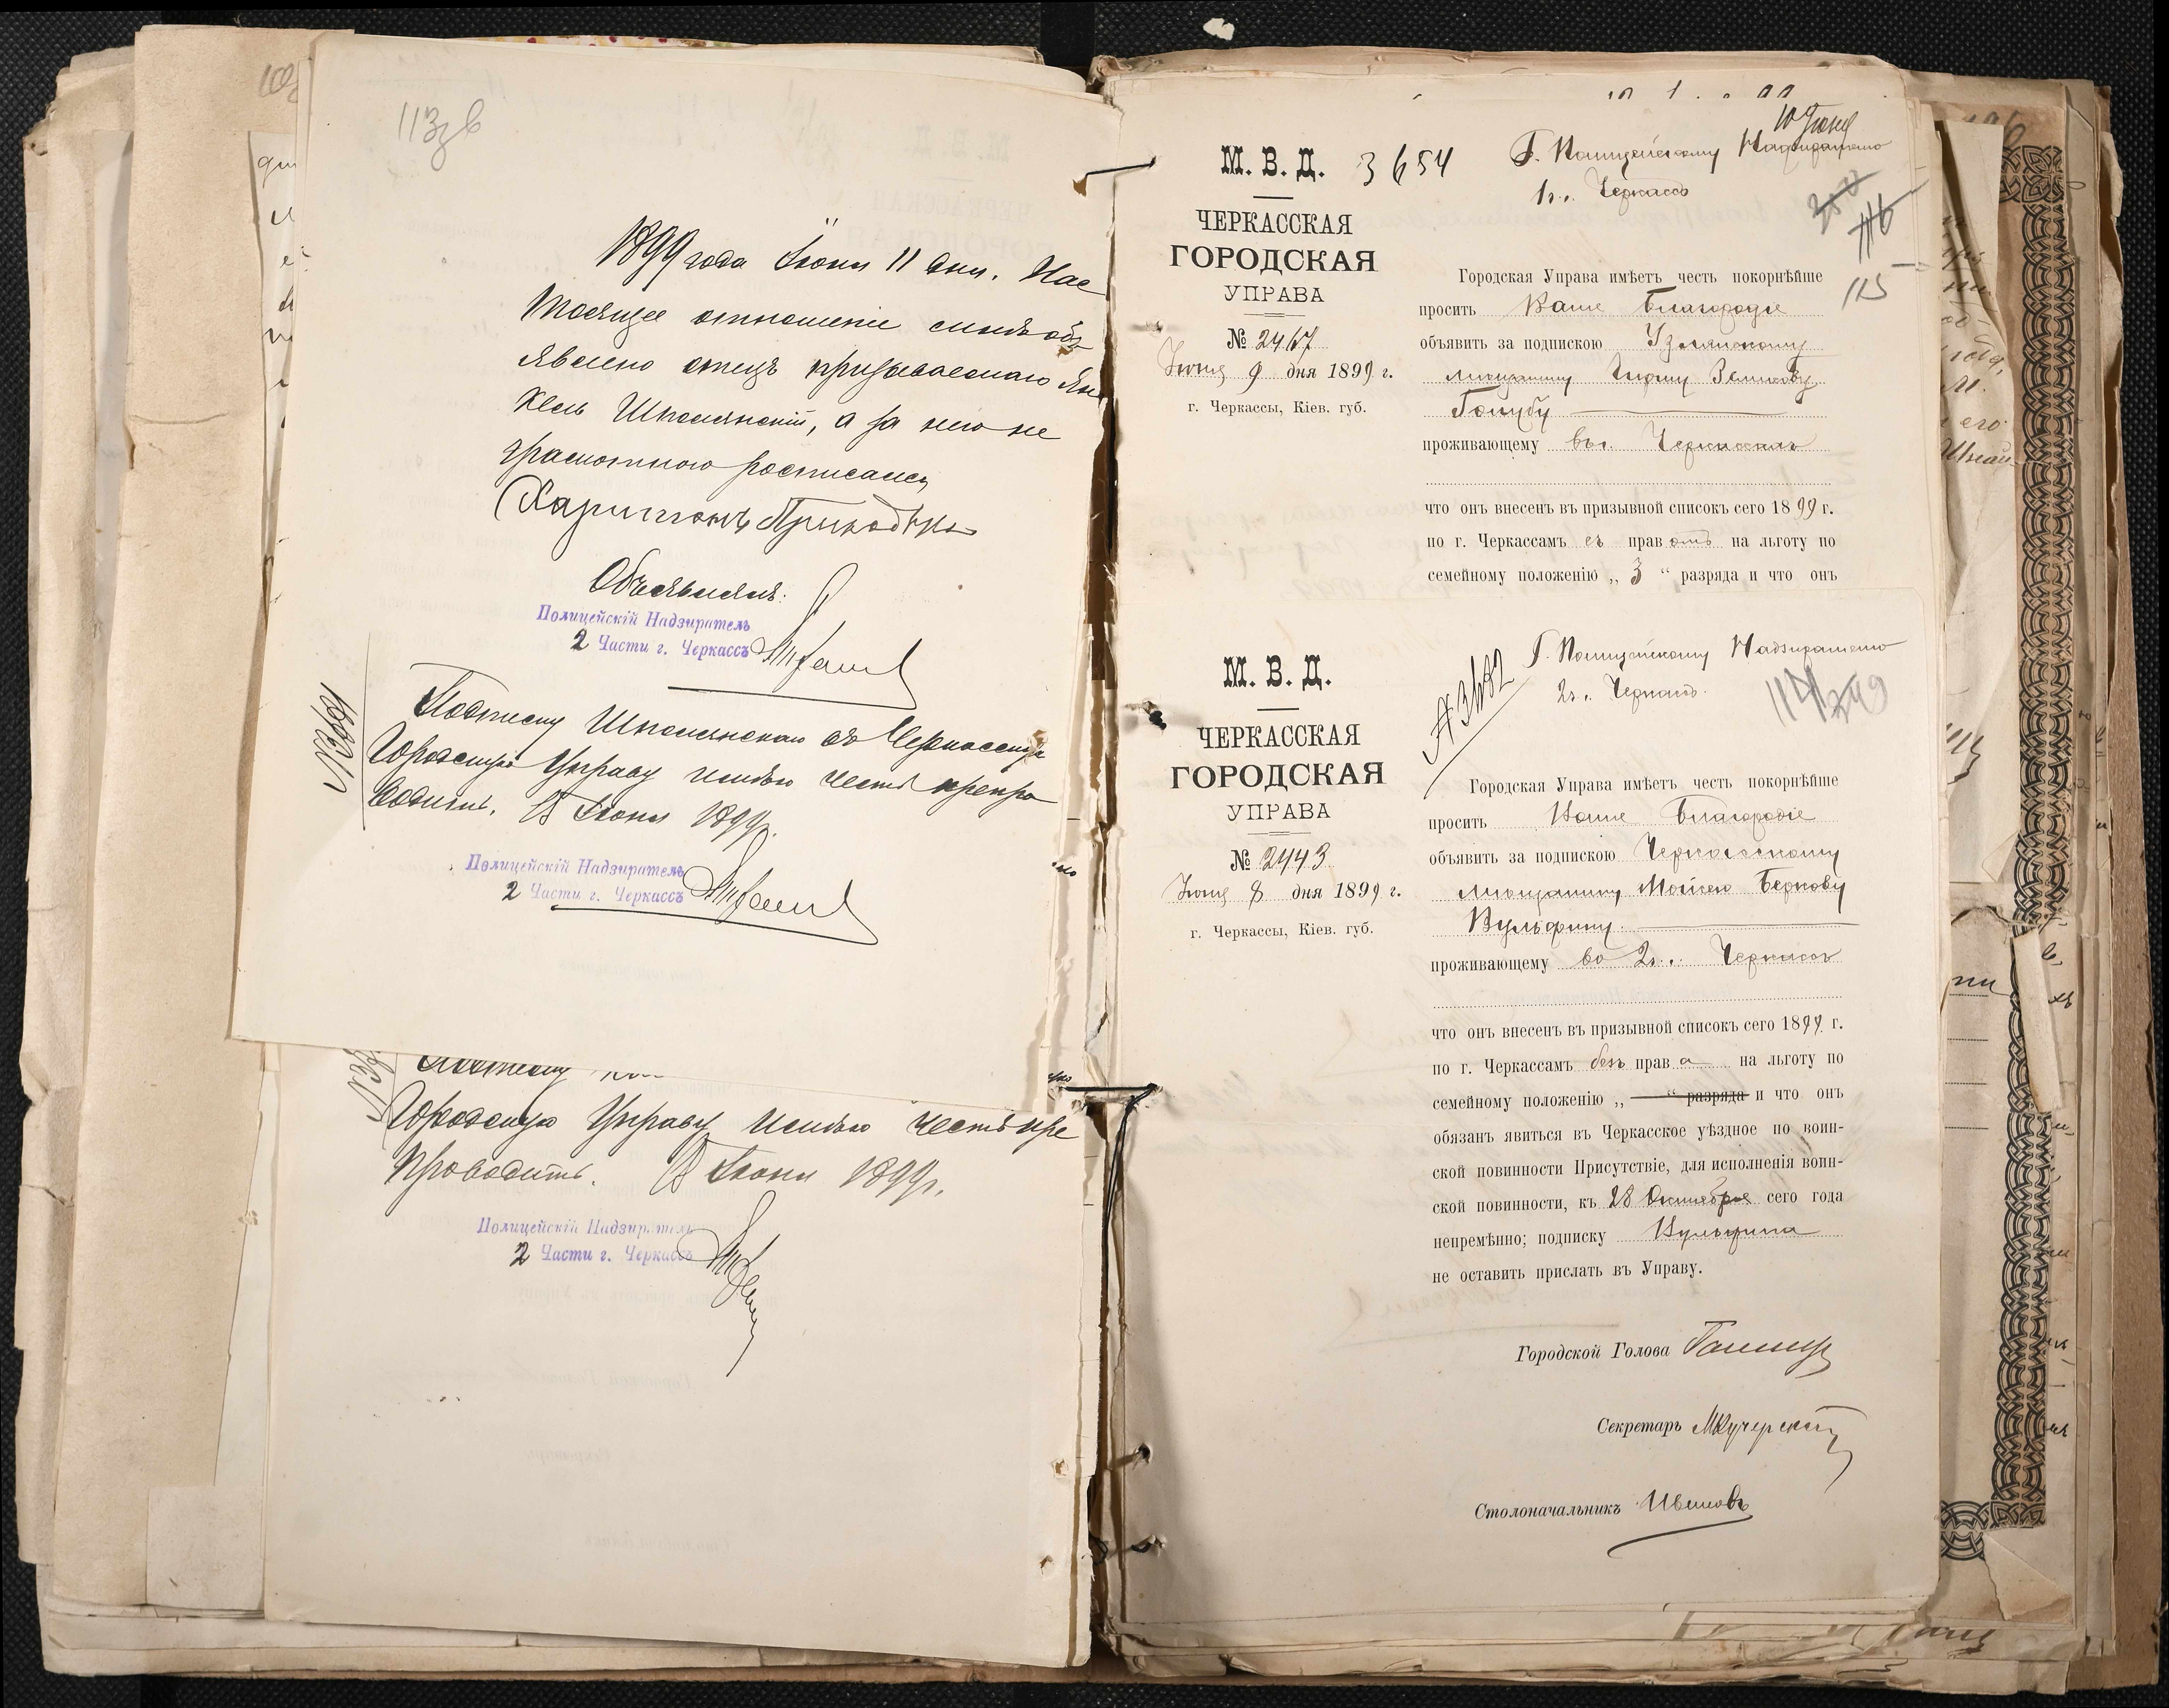 113зв
1899 года Іюня 11 дня. Нас
тоящее отношеніе симъ объ
явлено отецъ призываемаго Ян
кель Шполянскій, а за него не
грамотного росписался
Харитонъ Приходько
Объявилъ:
Полицейскій Надзиратель
2 Части г. Черкассъ
№3661
Подписку Шполянскаго въ Черкасскую
Городскую Управу имѣю честь препро
водить. Іюня 1899 г.
Полицейскій Надзиратель
2 Части г. Черкассъ
Подписку
Городскую Управу имѣю честь пре
проводить. Іюня 1899 г.
Полицейскій Надзиратель
2 Части г. Черкассъ
10 Іюня
М. В. Д. 3654
Г. Полицейскому Надзирателю
1 ч. г. Черкассъ
116
115
ЧЕРКАССКАЯ
ГОРОДСКАЯ
УПРАВА
№ 2467
Іюня 9 дня 1899 г.
г. Черкассы, Кіев. губ.
Городская Управа имѣетъ честь покорнѣйше
просить Ваше Благородіе
объявить за подпискою
мѣщанину
Голубу
проживающему въ г. Черкассахъ
что онъ внесенъ въ призывной списокъ сего 1899 г.
по г. Черкассамъ съ правомъ на льготу по
семейному положенію „ 3 “ разряда и что онъ
М. В. Д.
№ 3682
Г. Полицейскому Надзирателю
2 ч. г. Черкассъ.
114 249
ЧЕРКАССКАЯ
ГОРОДСКАЯ
УПРАВА
№ 2443
Іюня 8 дня 1899 г.
г. Черкассы, Кіев. губ.
Городская Управа имѣетъ честь покорнѣйше
просить Ваше Благородіе
объявить за подпискою Черкасскому
мѣщанину Мойсею Беркову
Вульфину
проживающему во 2 ч. г. Черкассъ
что онъ внесенъ въ призывной списокъ сего 1899 г.
по г. Черкассамъ безъ права на льготу по
семейному положенію „ “ разряда и что онъ
обязанъ явиться въ Черкасское уѣздное по воин-
ской повинности Присутствіе, для исполненія воин-
ской повинности, къ 28 Октября сего года
непремѣнно; подписку Вульфина
не оставить прислать въ Управу.
Городской Голова
Секретарь МКучерскій
Столоначальникъ Ивановъ